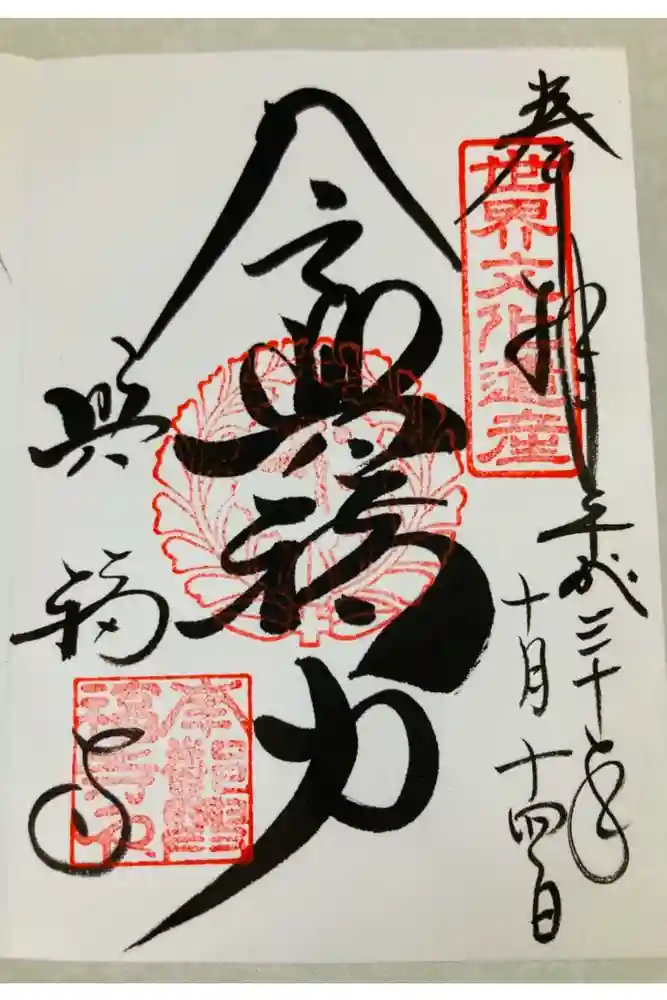 奉拝
世界文化遺産
平成三十年
十月十四日
令興福力
興福寺